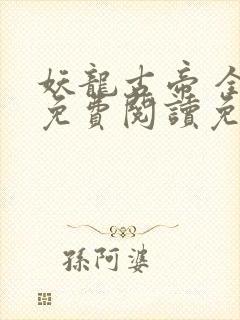 妖龍古帝 全
免費閱讀免
孫阿婆